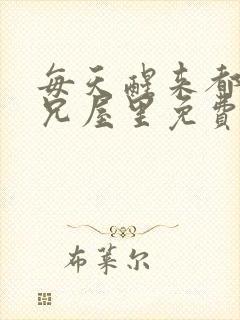 每天醒来都
兄屋里免費
布莱尔